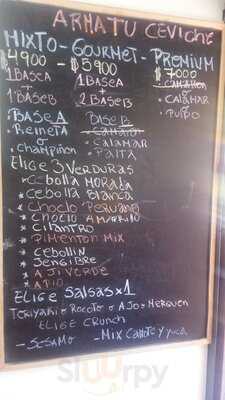 ARMATU CEVIChe
MIXTO - GOURMET - PREMIUM
$4900 - $5900 $7000
1BASEA 1BASEA • CAMARON
+ + o
1BASEB 2BASEB • CALAMAR
o
• PULPO
BASE A BASE B
• REINETA • CAMARON
o • CALAMAR
• CHAMPIÑON • PALTA
Elige 3 VERDURAS
* CEBOLLA MORADA
* CEBOLLA BLANCA
* CHOCLO PERUANO
* CHOCLO AMARILLO
* CILANTRO
* PIMENTON MIX
* CEBOLLIN
* JENGIBRE
* AJI VERDE
* APIO
ELIGE SALSAS x1
TERIYAKI o ROCOTO o AJO o MERQUEN
ELIGE CRUNCH
- SESAMO - MIX CAMOTE Y YUCA
Sluurpy